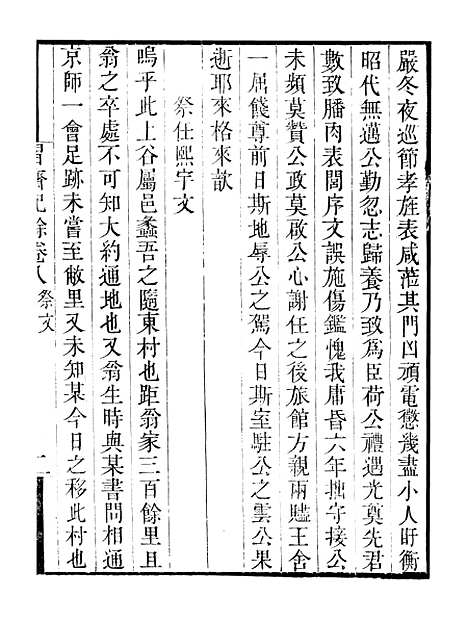 嚴冬夜巡節孝旌表咸蒞其門凶頑電懲幾盡小人盱衡
昭代無邁公勤忽志歸養乃致爲臣荷公禮遇光奠先君
數致膰肉表閭序文誤施傷鑑愧我庸昏六年拙守接公
未頻莫贊公政莫啟公心謝任之後旅館方親兩贐王舍
一屈餞尊前日斯地辱公之駕今日斯室駐公之雲公果
逝耶來格來歆
祭任熙宇文
嗚乎此上谷屬邑蠡吾之隨東村也距翁家三百餘里且
翁之卒處不可知大約通地也又翁生時與某書問相通
京師一會足跡未嘗至敝里又未知某今日之移此村也
習齋記餘卷八 祭文
二